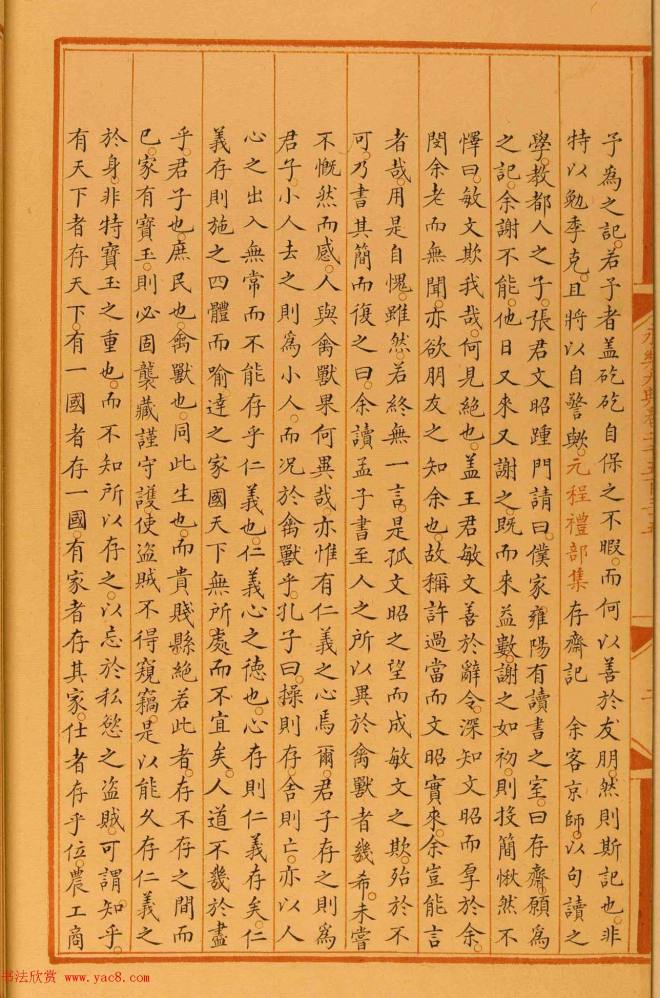 予為之記。若予者盖矻矻自保之不暇。而何以善於友朋。然則斯記也。非
特以勉季克。且將以自警歟。元程禮部集存齋記 余客京師。以句讀之
學。教都人之子。張君文昭踵門請曰。僕家雍陽。有讀書之室。曰存齋。願為
之記。余謝不能。他日又來又謝之。既而來益數。謝之如初。則投簡愀然不
懌曰。敏文欺我哉。何見絕也。盖王君敏文善於辭令。深知文昭而厚於余。
閔余老而無聞。亦欲朋友之知余也。故稱許過當而文昭實來。余豈能言
者哉。用是自愧。雖然。若終無一言。是孤文昭之望而成敏文之欺。殆於不
可。乃書其簡而復之曰。余讀孟子書至人之所以異於禽獸者幾希。未嘗
不慨然而感。人與禽獸果何異哉。亦惟有仁義之心焉爾。君子存之則為
君子。小人去之則為小人。而况於禽獸乎。孔子曰。操則存。舍則亡。亦以人
心之出入無常而不能存乎仁義也。仁義心之德也。心存則仁義存矣。仁
義存則施之四體而喻。達之家國天下無所處而不宜矣。人道不幾於盡
乎。君子也。庶民也。禽獸也。同此生也。而貴賤縣絕若此者。存不存之間而
已。家有寶玉。則必固襲藏謹守護使盜賊不得窺竊。是以能久存仁義之
於身。非特寶玉之重也。而不知所以存之。以忘於私慾之盜賊。可謂知乎。
有天下者存天下。有一國者存一國。有家者存其家。仕者存乎位。農工商
永樂大典卷二千五百三十五
二
书法欣赏 www.yac8.com